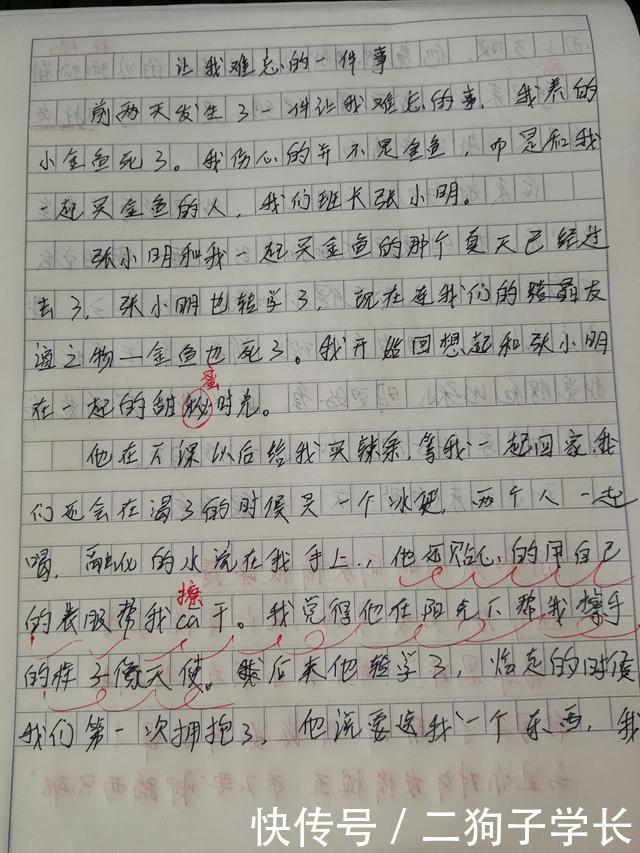 让我难忘的一件事
前两天发生了一件让我难忘的事，我养的
小金鱼死了。我伤心的并不是金鱼，而是和我
一起买金鱼的人，我们班长张小明。
张小明和我一起买金鱼的那个夏天已经过
去了，张小明也转学了，现在连我们的友
谊之物—金鱼也死了。我开始回想起和张小明
蜜
在一起的甜秘时光。
他在下课以后给我买辣条，等我一起回家，我
们还会在渴了的时候买一个冰棍，两个人一起
喝，融化的水流在我手上，他还贴心的用自己
擦
的衣服帮我ca干。我觉得他在阳光下帮我擦手
的样子像天使。后来他转学了，临走的时候
我们第一次拥抱了，他说要送我一个东西，我
快传号／二狗子学长